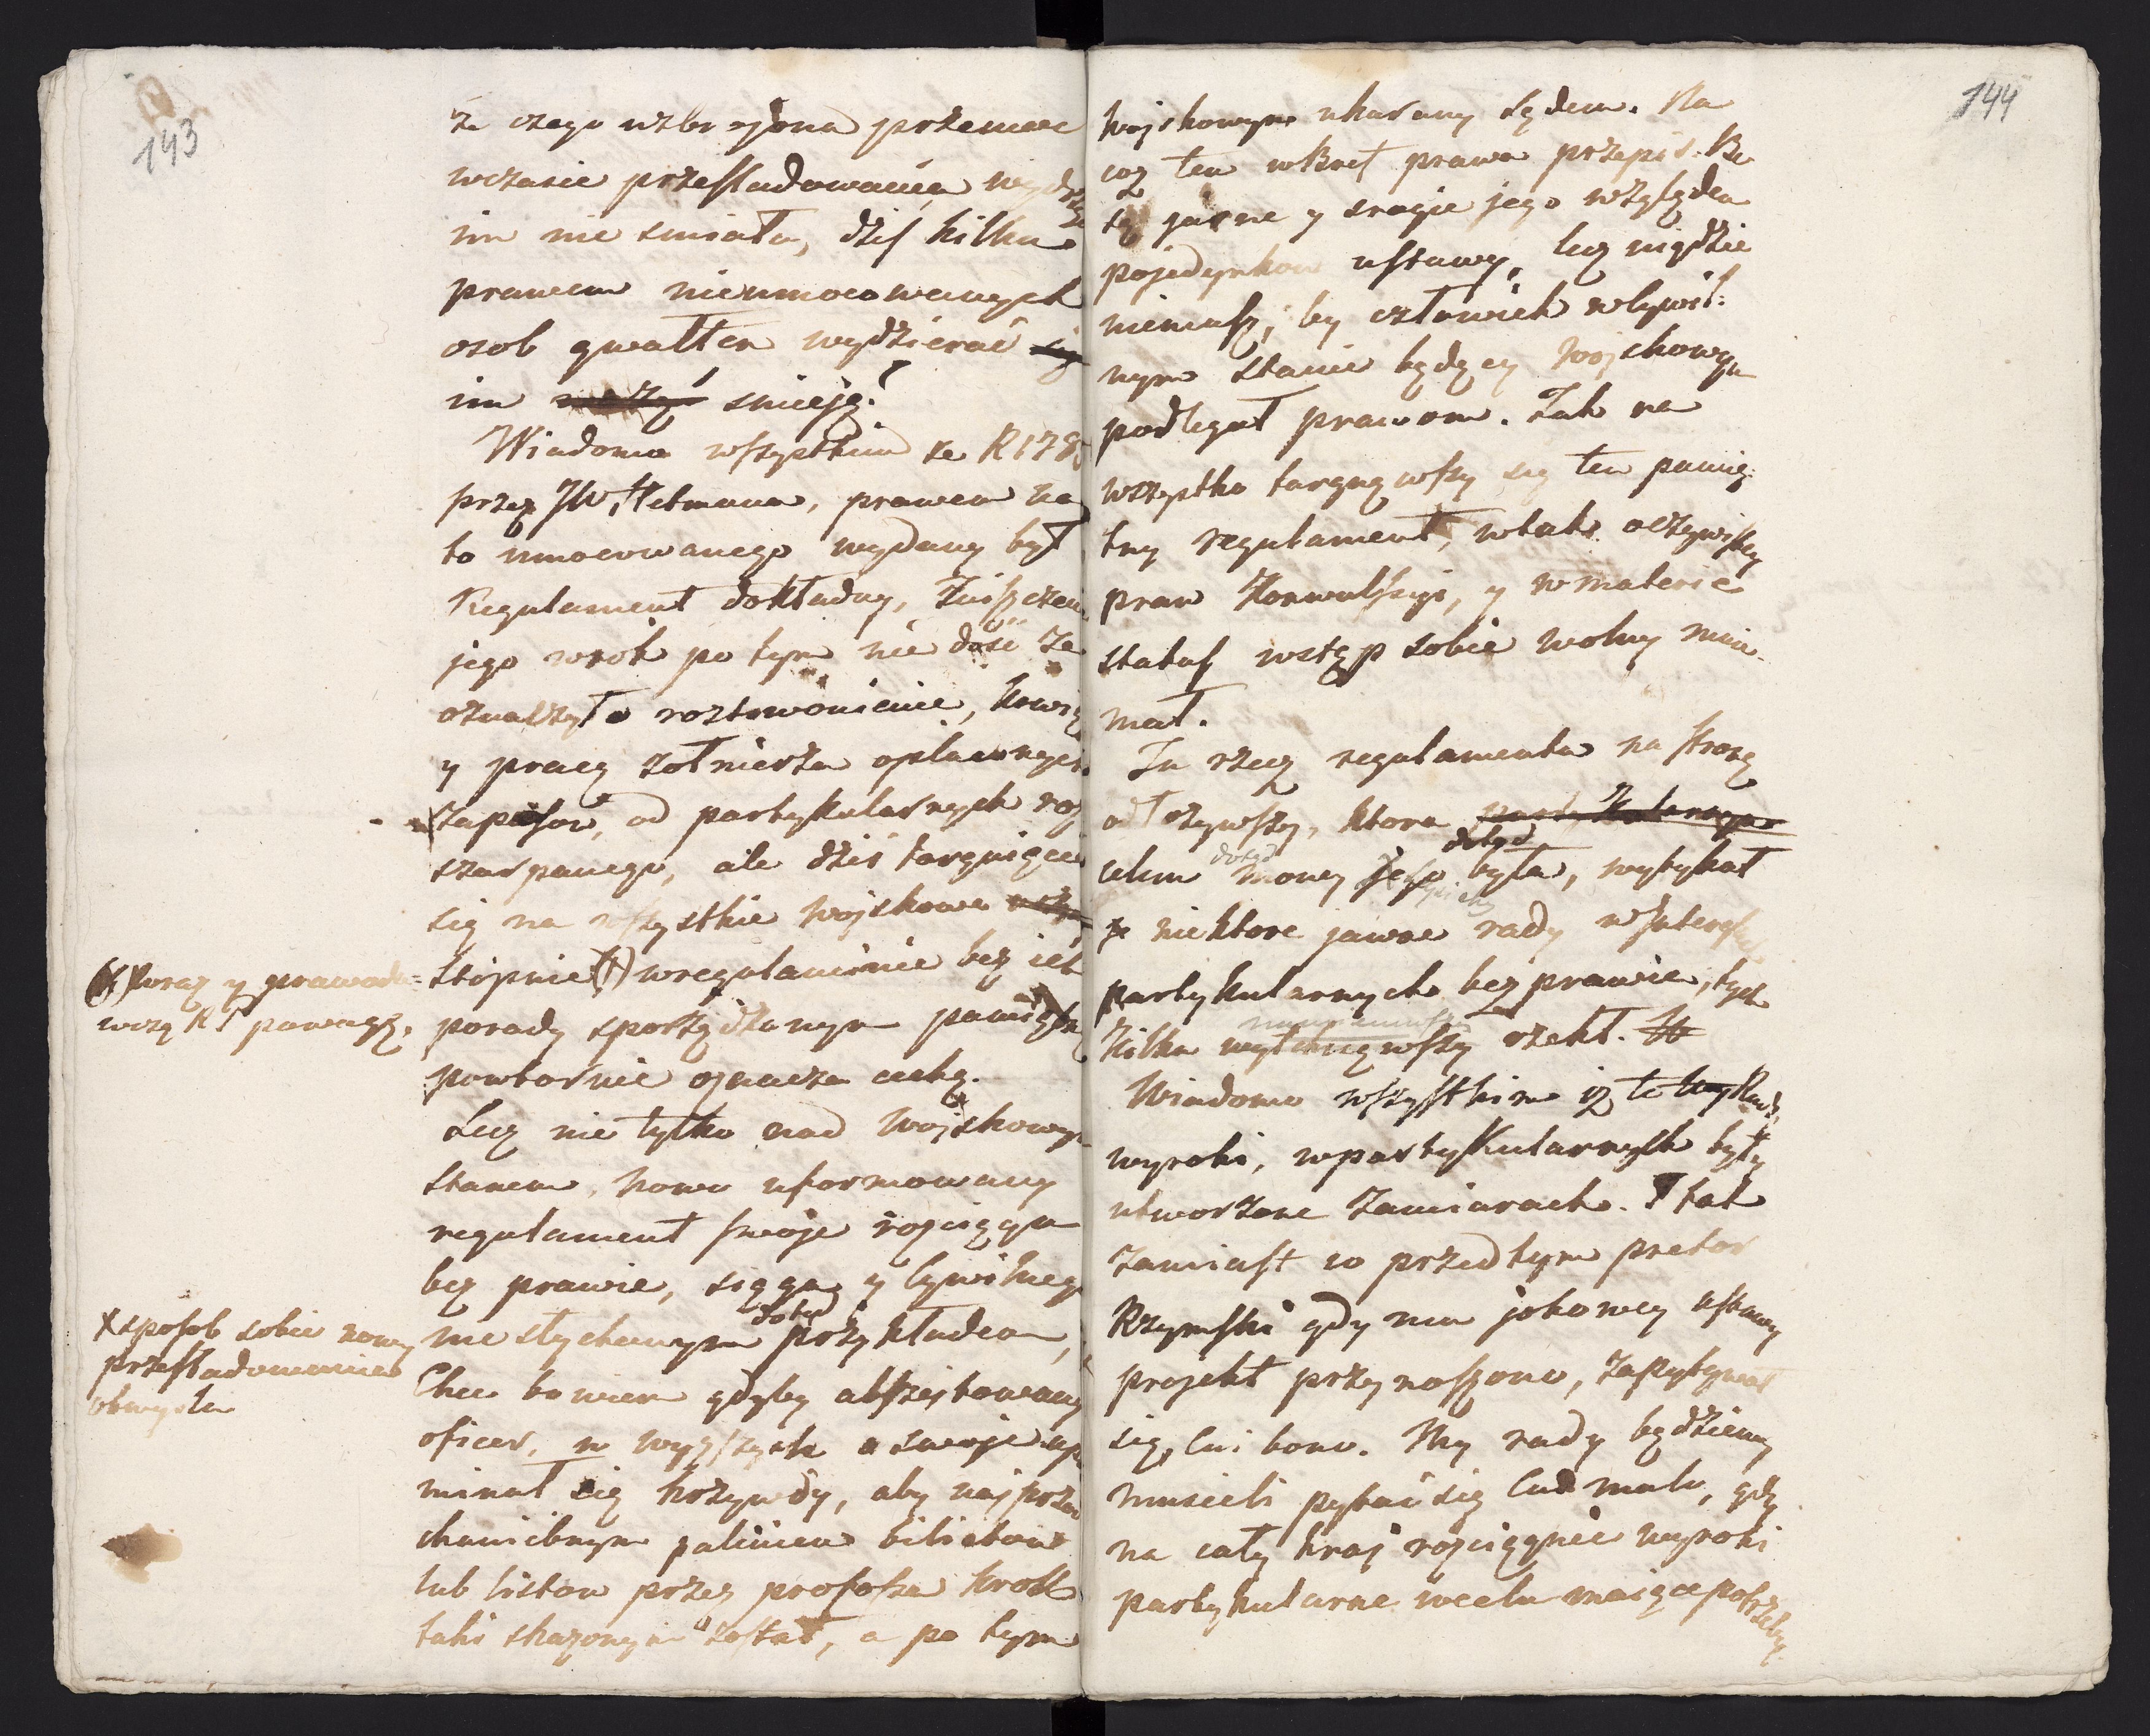 143
że czego uzbrojona przemoc
wczasie przesladowania wydrzeć
im nie smiała, dziś kilku
prawem nieumocowanych
osob gwałtem wydzierać się
im smieją?
Wiadomo wszystkim że R 178
przez JW. Hetmana, prawem na
to umocowanego wydany był
Regulament dokładny, Zniszczenie
jego wrok po tym nie dość ze
oznaczyło roztrwonienie, krwią
y pracą żołnierza opłaconych
Zapasow, od partykularnych roz
szarpanego, ale dziś targnięcie
się na wszystkie wojskowe
stopnie (+) wregulaminie bez ich
porady sporządzonym
powtornie oznacza cechą.
Lecz nie tylko nad wojskowym
stanem, nowo uformowany
regulament swoje rozciąga
bez prawie, sięga y Cywilnego
niesłychanym dotąd przykładem,
Chce bowiem gdyby abszejtowany
oficer, u wyższych o swoje upo
minał się krzywdy, aby najprzod
chaniebnym paleniem biletow
lub listow przez profosa krok
taki skazonym został, a po tym
(+) oraz y prawodaw=
wczą Rt powagę,
x sposob sobie nowy
przesladowania
obmysla
144
wojskowym ukarany sądem. Na
coż ten wbref prawa przepis. Be
są jasne y srogie jego względem
pojedynkow ustawy, lecz nigdzie
niemasz, by człowiek wCywil=
nym stanie będący wojskowym
podlegał prawom. Tak na
wszystko targnąwszy się ten pamię=
tny regulament, wtak oczywistey
praw Konwulsyi, y wmaterie
status wstęp sobie wolny mnie=
mał.
Tu rzecz regulamentu na stronę
odłożywszy, ktora
celem dotąd mowy jego dotąd była, wytykał
niektore jawne rady wInteressach
partykularnych bezprawie, tych
Kilka rzekł.
Wiadomo wszystkim iż te Rady
wyroki, wpartykularnych były
utworzone Zamiarach. I tak
Zamiast co przedtym pretor
Rzymski gdy mu jakowey ustawy
projekt przynoszono, Zapytywał
się, Cui bono. My rady będziemy
musieli pytać się Cui malo, gdy
na cały kraj rozciągnie wyroki
partykularne wcelu maiące potrzeby